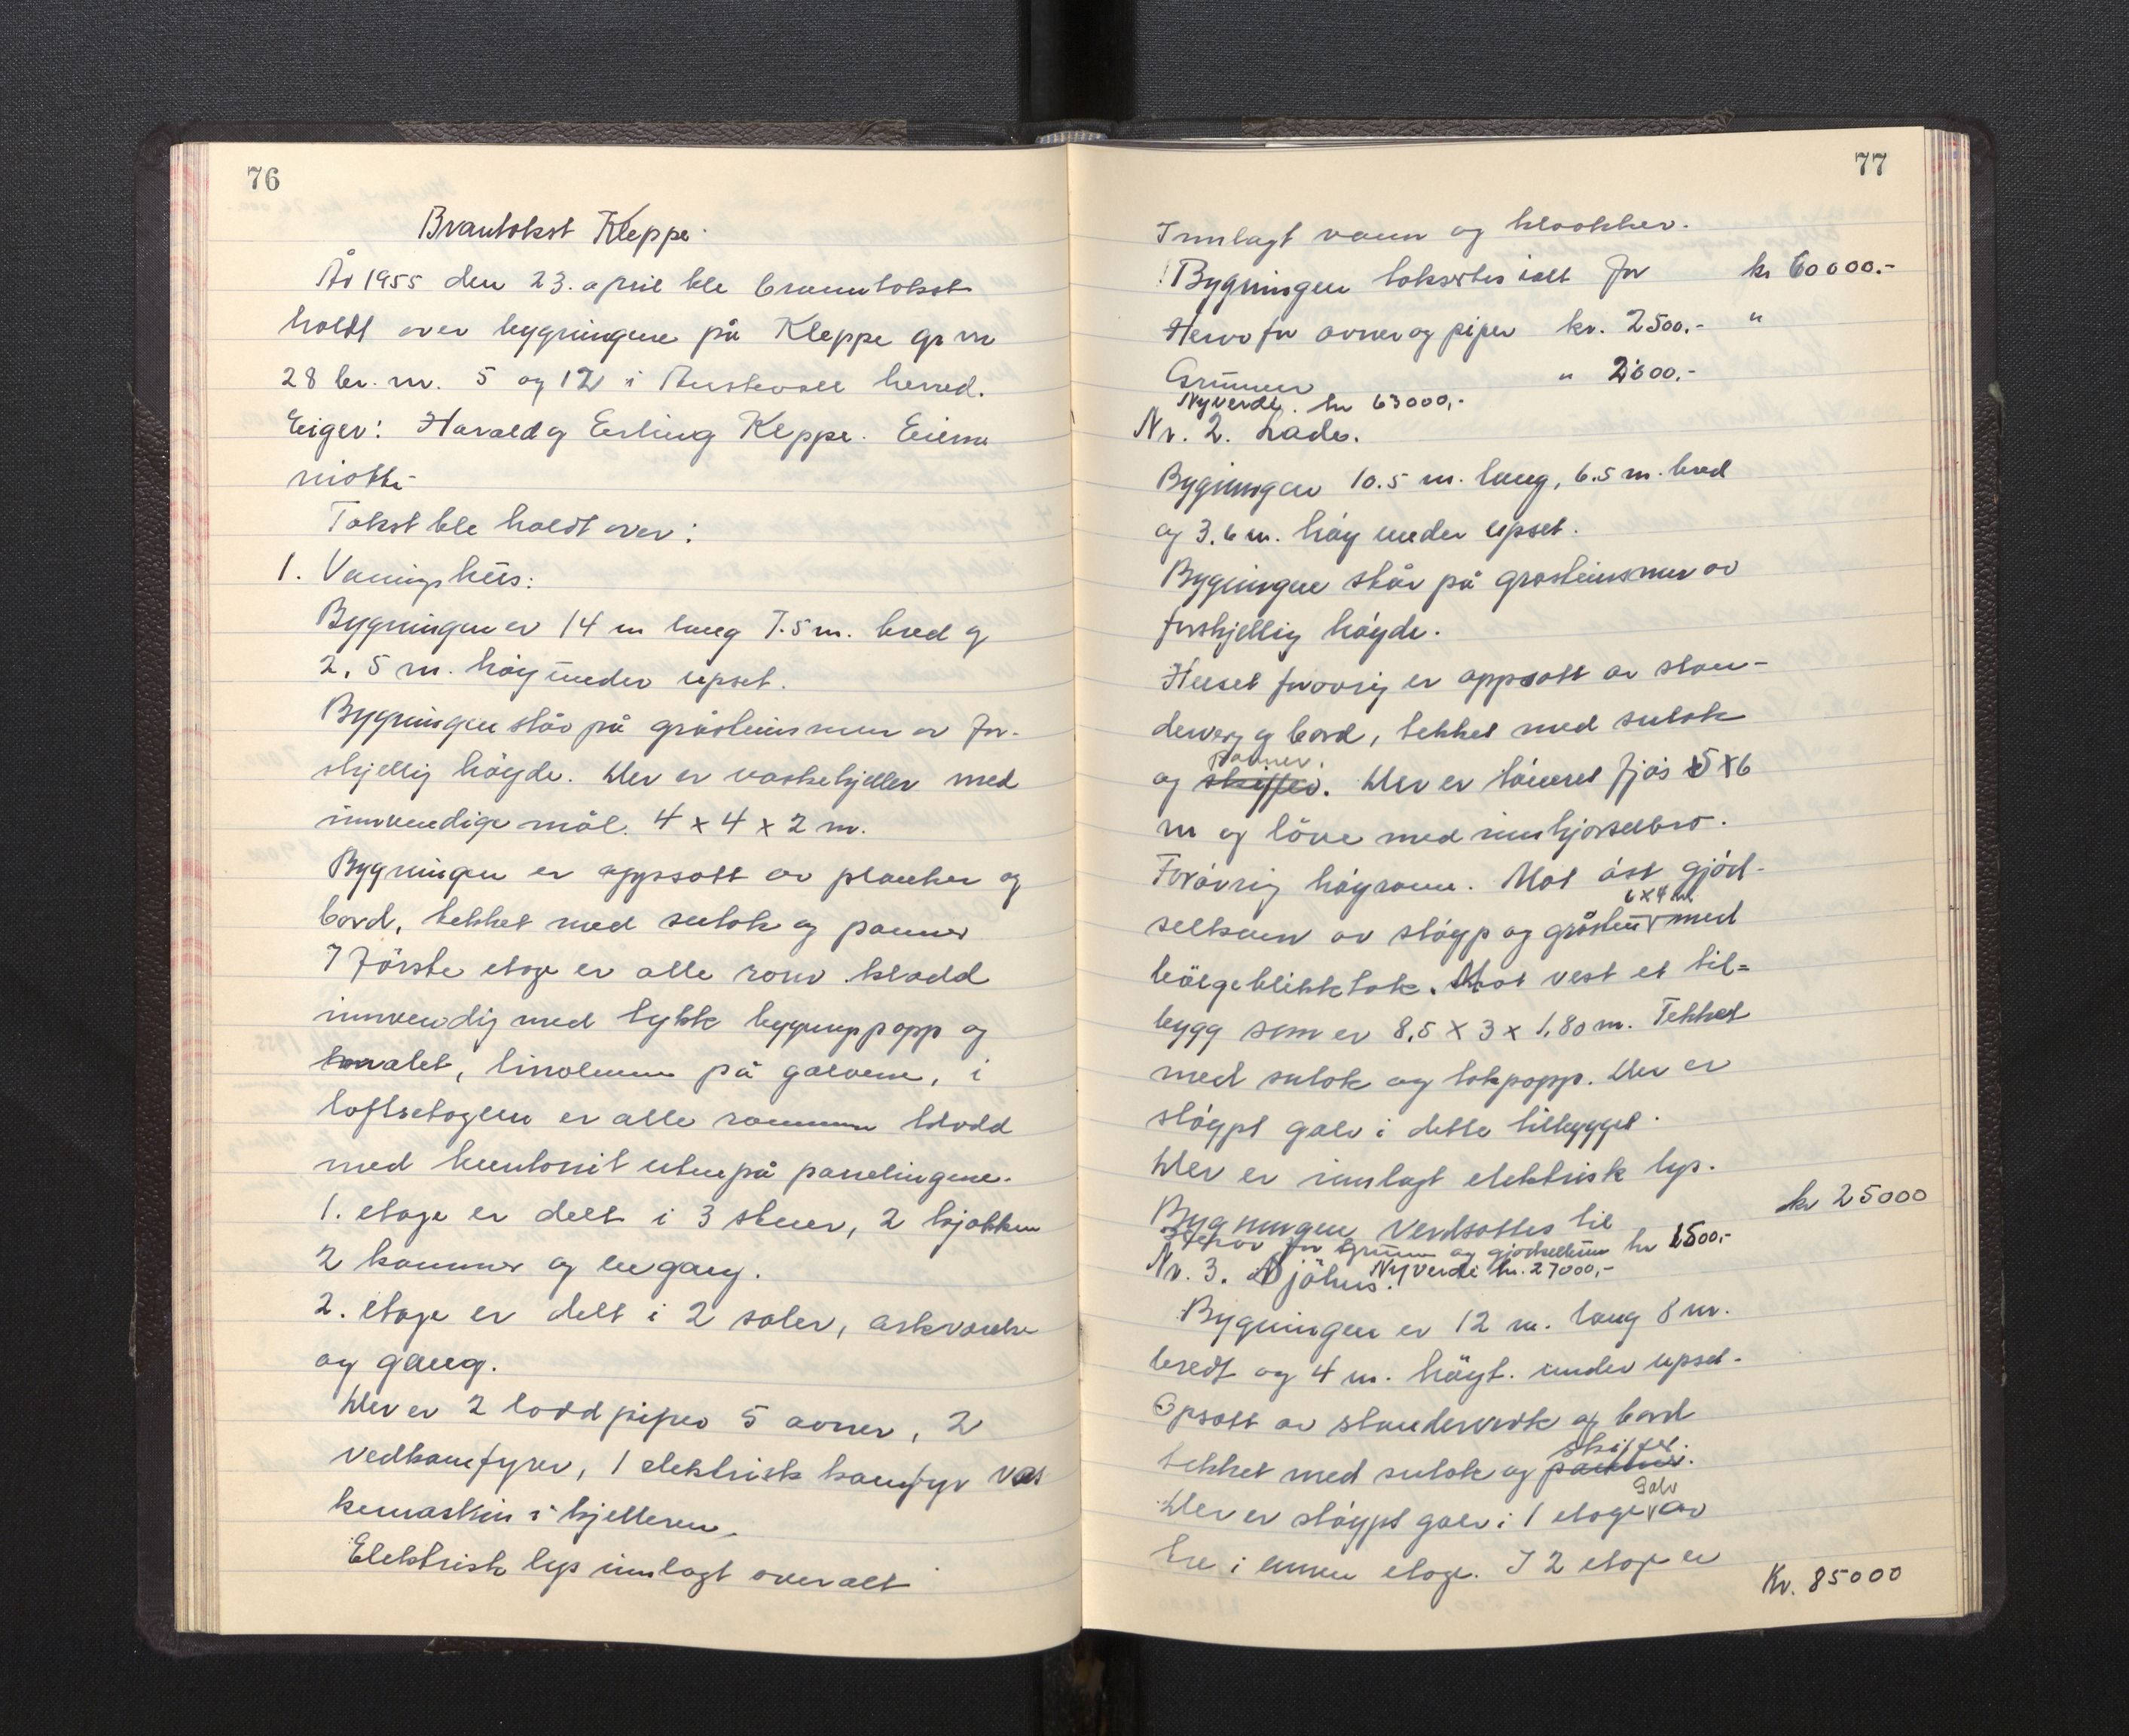 76
Branntakst Kleppe.
År 1955 den 23. april ble branntakst
holdt over bygningene på Kleppe gr nr
28 br. nr. 5 og 12 i Austevoll herred.
Eiger: Harald og Erling Kleppe. Eierne
møtte.
Takst ble holdt over:
1. Vaningshus:
Bygningen er 14 m lang 7.5 m. bred og
2,5 m. høy under upset.
Bygningen står på gråsteinsmur av for-
skjellig høyde. Der er vaskekjeller med
innvendige mål. 4 x 4 x 2 m.
Bygningen er oppsatt av planker og
bord, tekket med sutak og panner
I første etage er alle rom kledd
innvendig med tykk bygningspapp og
malet, linoleum på golvene, i
loftsetagen er alle rommene kledd
med huntonit utenpå panelingene.
1. etage er delt i 3 stuer, 2 kjøkken
2 kammer og en gang.
2. etage er delt i 2 saler,
og gang.
Der er 2 lodd piper 5 ovner, 2
vedkomfyrer, 1 elektrisk komfyr vas
kemaskin i kjelleren.
Elektrisk lys innlagt overalt
77
Innlagt vann og kloakker.
Bygningen taksertes ialt for kr 60000.-
Herav for ovner og piper kr. 2500.- "
Grunnmur " 2000.-
Nyverdi. kr 63000,-
Nr. 2. Lade.
Bygningen 10.5 m. lang, 6.5 m. bred
og 3.6 m. høy under upset.
Bygningen står på gråsteinsmur av
forskjellig høyde.
Huset forøvrig er oppsatt av stan-
derverg og bord, tekket med sutak
panner.
og skiffer. Der er fjøs 5 x 6
m og løve med innkjørselbro.
Forøvrig høyrom. Mot øst gjød-
6 x 4 m
selkum av støyp og gråstein med
bølgeblikktak. Mot vest et til=
bygg som er 8,5 x 3 x 1,80 m. Tekket
med sutak og takpapp. Der er
støypt golv i dette tilbygget.
Der er innlagt elektrisk lys.
Bygningen verdsattes til kr 25000
Herav for grunnm og gjødselkum kr 1500,-
Nr. 3. Sjøhus. Nyverdi kr. 27000,-
Bygningen er 12 m. lang 8 m.
bredt og 4 m. høyt. under upset.
Opsatt av standerverk og bord
skiffer.
tekket med sutak og panner.
Golv
Der er støypt golv i 1 etage av
tre i annen etage. I 2 etage er
Kr. 85000